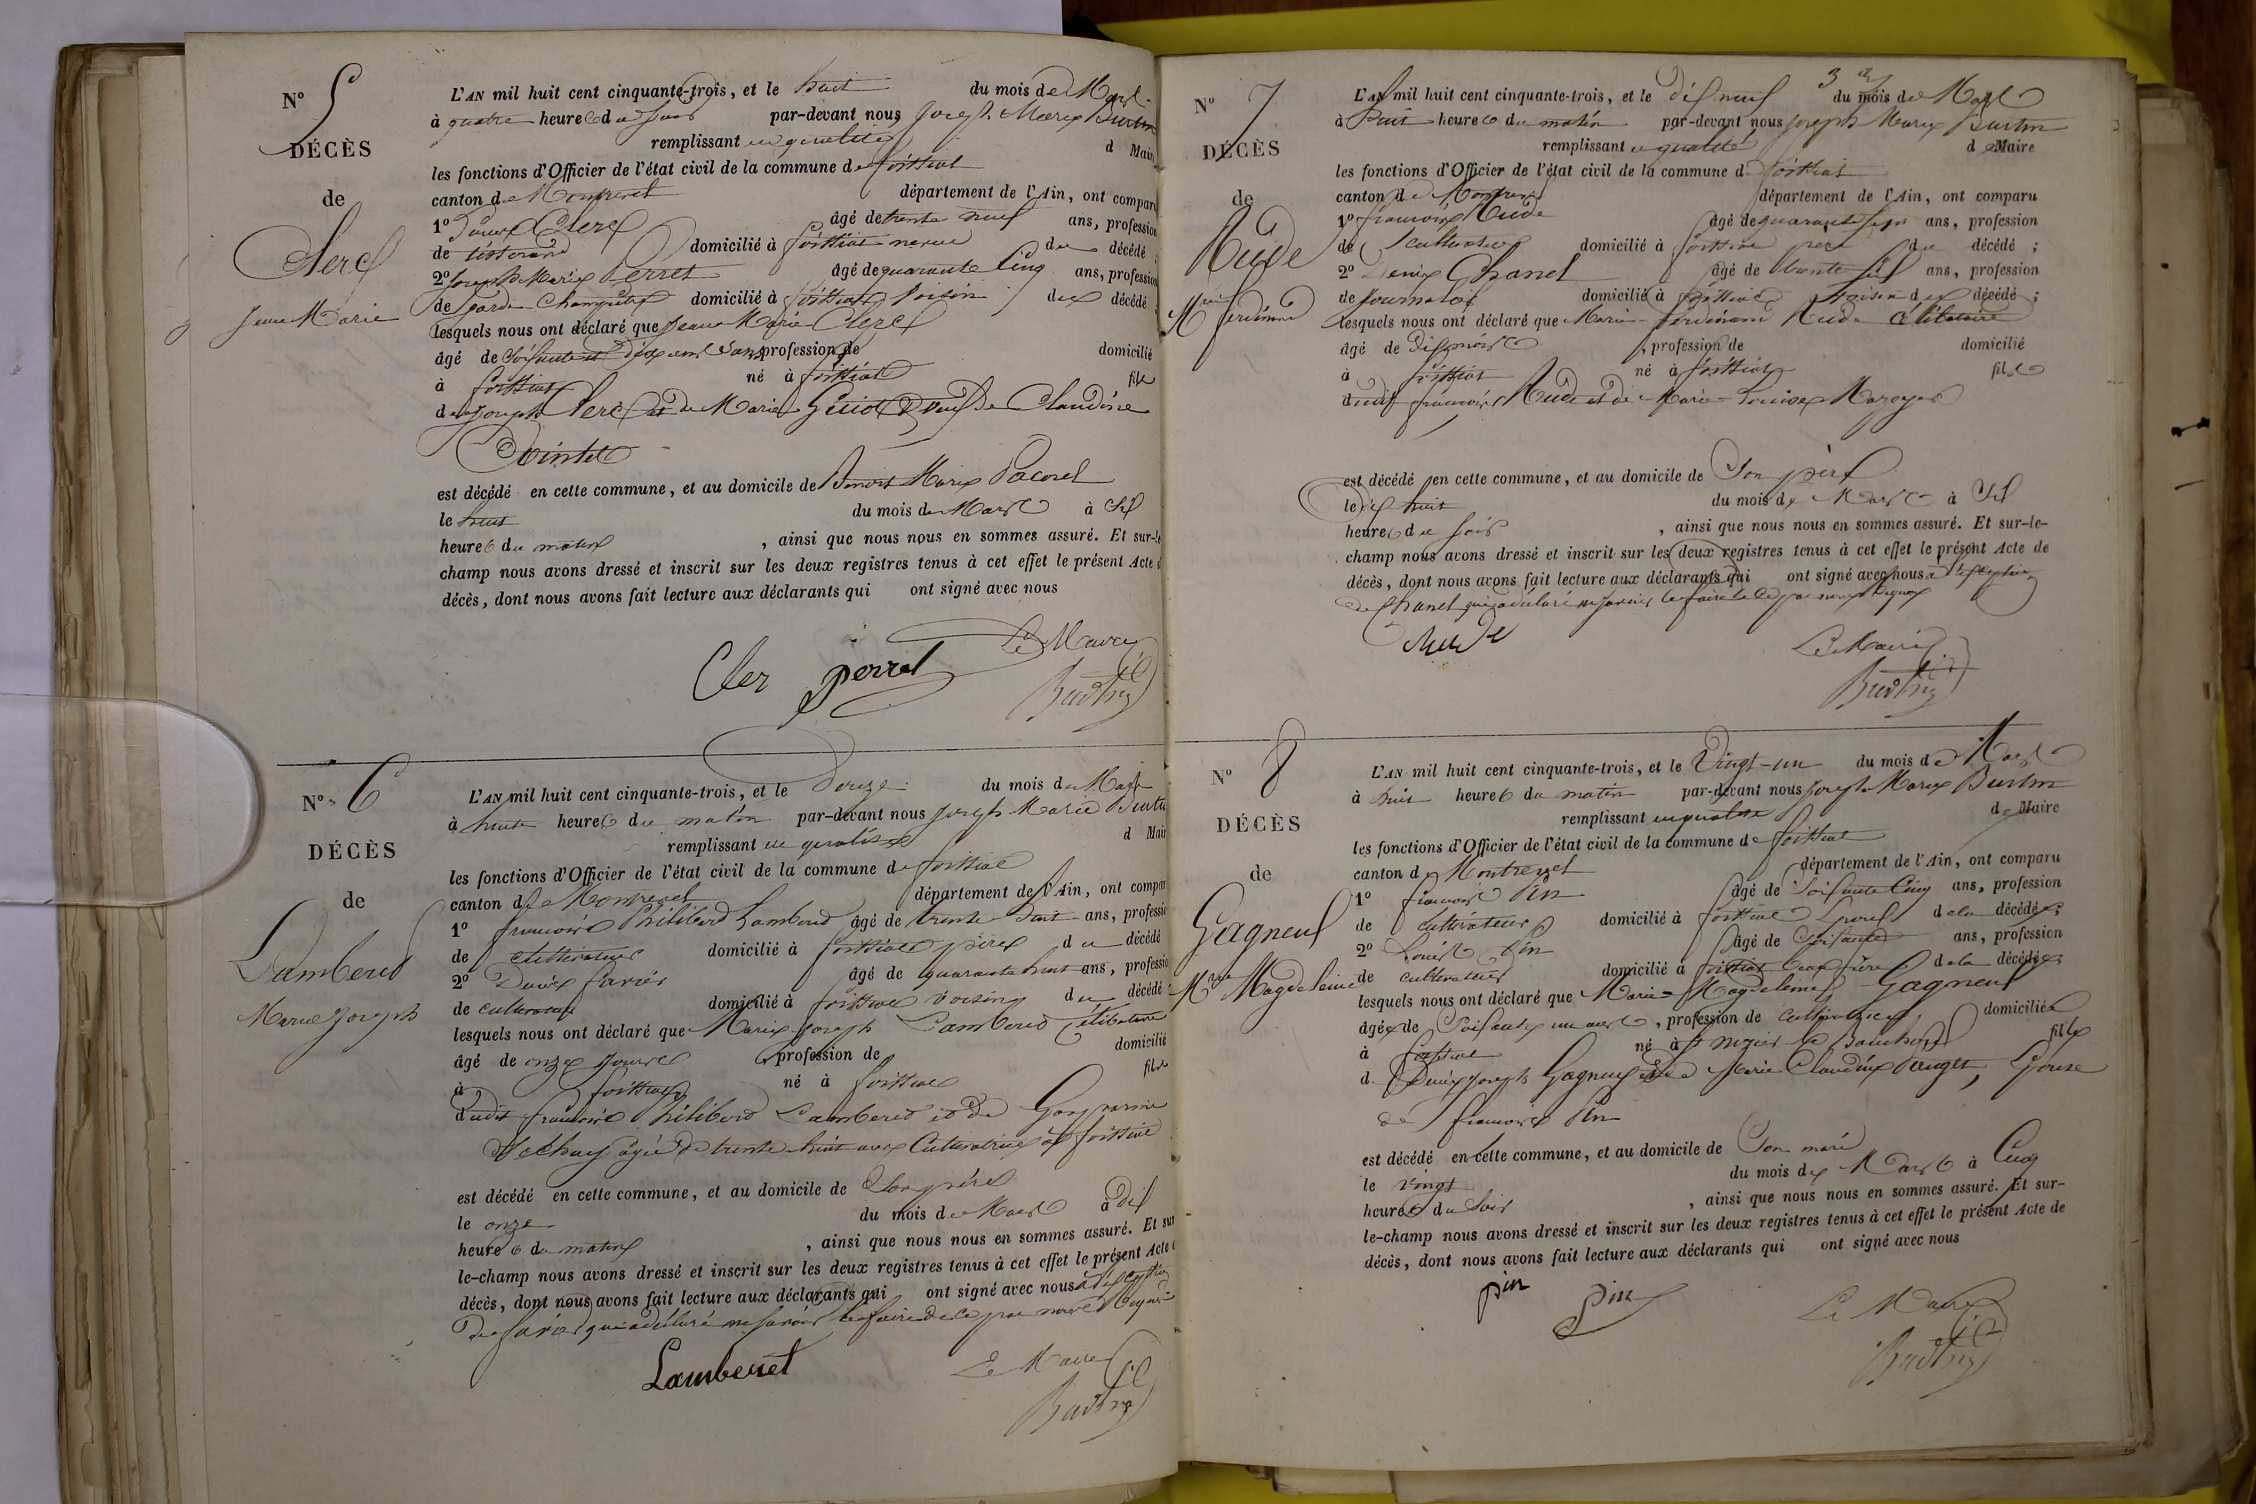 N° 5
DÉCÈS
de
Clerc
Jean Marie
L'AN mil huit cent cinquante-trois, et le huit du mois de Mars
à quatre heures du soir par-devant nous Joseph Marie Burtin
remplissant en qualité d Maire
les fonctions d'Officier de l'état civil de la commune de foissiat
canton de Montrevel département de l'Ain, ont comparu
1° Clerc âgé de trente neuf ans, profession
de tisserand domicilié à foissiat neveu du décédé ;
2° Joseph Marie Perret âgé de quarante cinq ans, profession
de garde champêtre domicilié à foissiat voisin du décédé
lesquels nous ont déclaré que Jean Marie Clerc
âgé de soissante et dix ans profession de domicilié
à foissiat né à foissiat fils
de Joseph Clerc et de Marie veuf de Claudine
est décédé en cette commune, et au domicile de Benoit Marie Pacoret
le huit du mois de Mars à six
heures du matin , ainsi que nous nous en sommes assuré. Et sur-le-
champ nous avons dressé et inscrit sur les deux registres tenus à cet effet le présent Acte
décès, dont nous avons fait lecture aux déclarants qui ont signé avec nous
Cler perret Le Maire
Burtin
N° 6
DÉCÈS
de
Lamberet
Marie Joseph
L'AN mil huit cent cinquante-trois, et le Douze du mois de Mars
à huit heures du matin par-devant nous Joseph Marie Burtin
remplissant en qualité d Maire
les fonctions d'Officier de l'état civil de la commune de foissiat
canton de Montrevel département de l'Ain, ont comparu
1° françois Philibert Lamberet âgé de trente huit ans, profession
de cultivateur domicilié à foissiat père du décédé
2° Denis favier âgé de quarante huit ans, profession
de cultivateur domicilié à foissiat voisin du décédé
lesquels nous ont déclaré que Marie Joseph Lamberet célibataire
âgé de onze jours profession de domicilié
à foissiat né à foissiat fils
dudit françois Philibert Lamberet et de
âgée de trente huit ans Cultivatrice à foissiat
est décédé en cette commune, et au domicile de Son père
le onze du mois de Mars à dix
heures du matin , ainsi que nous nous en sommes assuré. Et sur
le-champ nous avons dressé et inscrit sur les deux registres tenus à cet effet le présent Acte
décès, dont nous avons fait lecture aux déclarants qui ont signé avec nous à l'exception
de favier qui a déclaré ne savoir le faire de ce par nous Requis
Lamberet Le Maire
Burtin
3
N° 7
DÉCÈS
de
Rude
Mie ferdinand
L'AN mil huit cent cinquante-trois, et le dix neuf du mois de Mars
à huit heures du matin par-devant nous Joseph Marie Burtin
remplissant en qualité de Maire
les fonctions d'Officier de l'état civil de la commune d foissiat
canton de Montrevel département de l'Ain, ont comparu
1° françois Rude âgé de quarante sept ans, profession
de cultivateur domicilié à foissiat père du décédé ;
2° Denis Chanel âgé de trente six ans, profession
de journalier domicilié à foissiat voisin du décédé ;
lesquels nous ont déclaré que Marie ferdinand Rude célibataire
âgé de dix mois , profession de domicilié
à foissiat né à foissiat fils
dudit françois Rude et de Marie Louise Mazoyer
est décédé en cette commune, et au domicile de Son père
le dix huit du mois de Mars à Six
heures du soir , ainsi que nous nous en sommes assuré. Et sur-le-
champ nous avons dressé et inscrit sur les deux registres tenus à cet effet le présent Acte de
décès, dont nous avons fait lecture aux déclarants qui ont signé avec nous à l'exception
de Chanel qui a déclaré ne savoir le faire de ce par nous Requis
Rude Le Maire
Burtin
N° 8
DÉCÈS
de
Gagneux
Mie Magdeleine
L'AN mil huit cent cinquante-trois, et le Vingt-un du mois de Mars
à huit heures du matin par-devant nous Joseph Marie Burtin
remplissant en qualité de Maire
les fonctions d'Officier de l'état civil de la commune de foissiat
canton de Montrevel département de l'Ain, ont comparu
1° françois Pin âgé de Soissante Cinq ans, profession
de cultivateur domicilié à foissiat Epoux de la décédée
2° Louis Pin âgé de Soissante ans, profession
de cultivateur domicilié à foissiat beau frère de la décédée
lesquels nous ont déclaré que Marie Magdeleine Gagneux
âgée de Soissante un ans , profession de cultivatrice domiciliée
à foissiat né à St Nizier le Bouchoux fille
de Denis Joseph Gagneux et de Marie Claudine Pauget, Epouse
de françois Pin
est décédé en cette commune, et au domicile de Son mari
le vingt du mois de Mars à Cinq
heures du soir , ainsi que nous nous en sommes assuré. Et sur-
le-champ nous avons dressé et inscrit sur les deux registres tenus à cet effet le présent Acte de
décès, dont nous avons fait lecture aux déclarants qui ont signé avec nous
pin pin Le Maire
Burtin